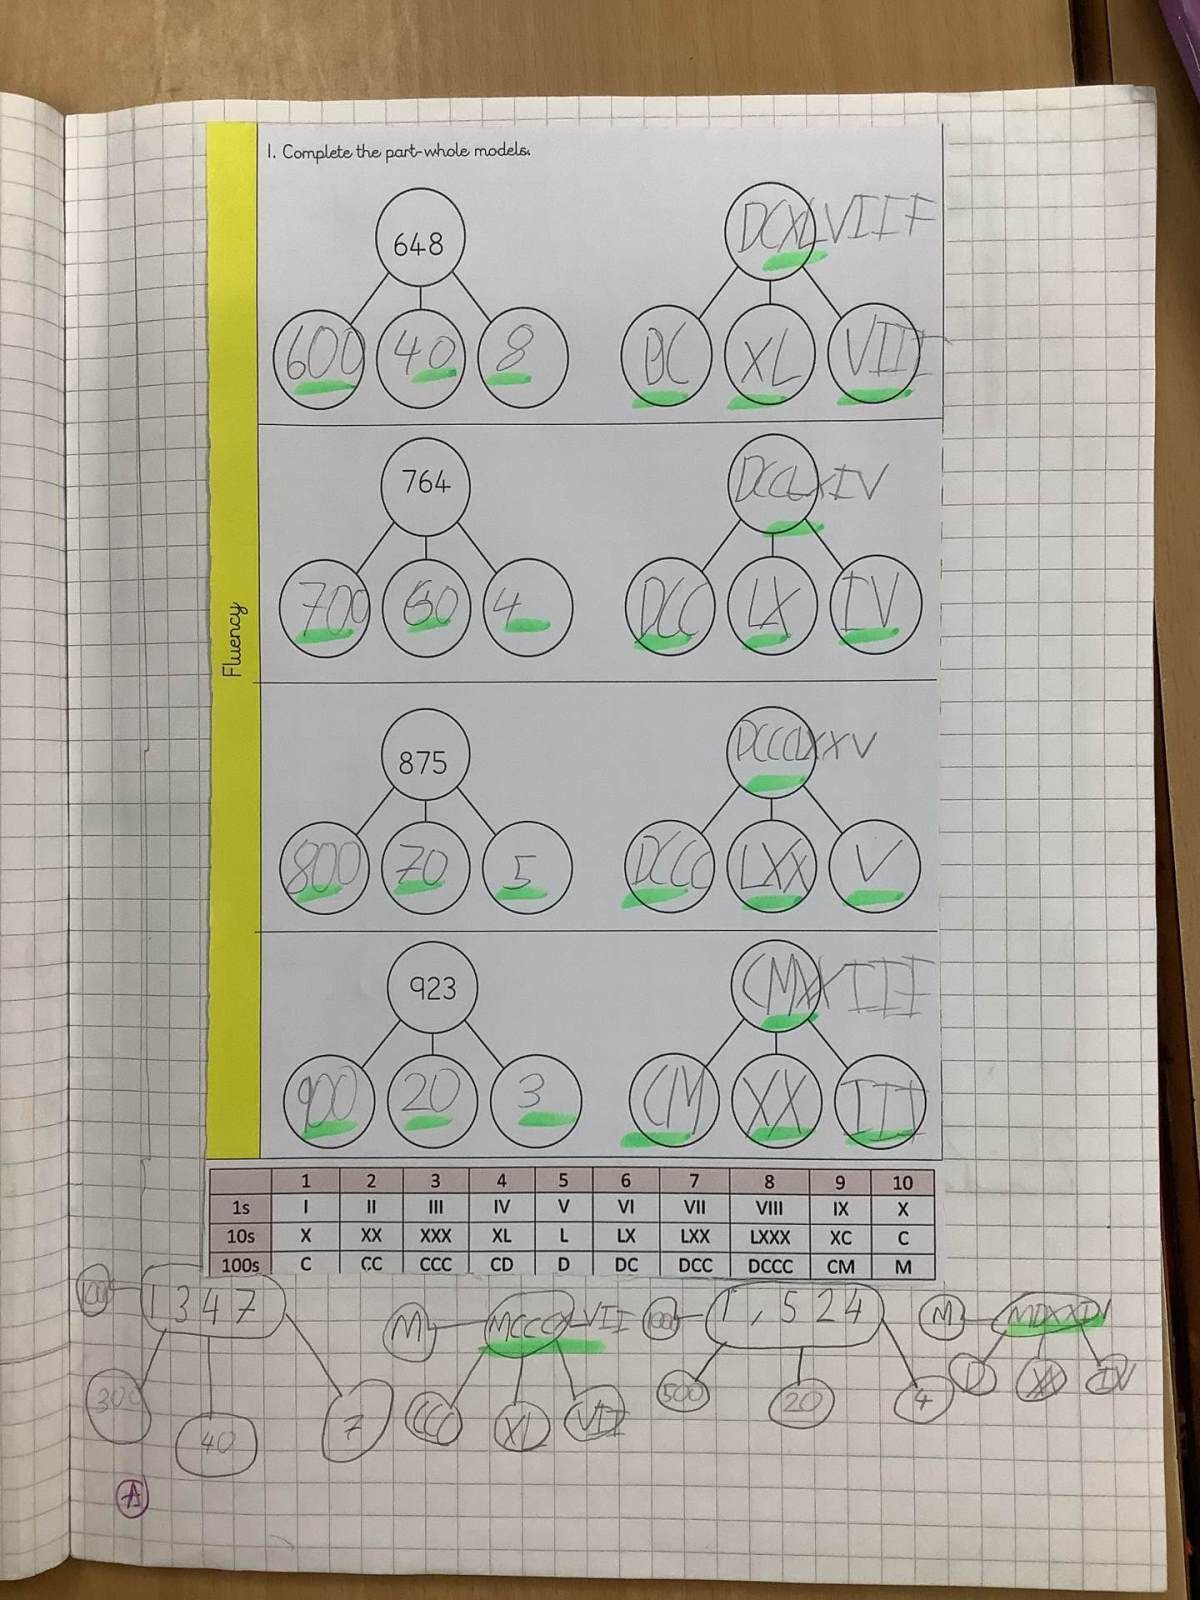 1. Complete the part-whole models.
648 DCXLVIII
600 40 8 DC XL VIII
764 DCCLXIV
700 60 4 DCC LX IV
Fluency
875 DCCCLXXV
800 70 5 DCCC LXX V
923 CMXXIII
900 20 3 CM XX III
1 2 3 4 5 6 7 8 9 10
1s I II III IV V VI VII VIII IX X
10s X XX XXX XL L LX LXX LXXX XC C
100s C CC CCC CD D DC DCC DCCC CM M
1000 1347 M MCCCXLVII 1000 1,524 M MDXXIV
300 40 7 CCC XL VII 500 20 4 D XX IV
A